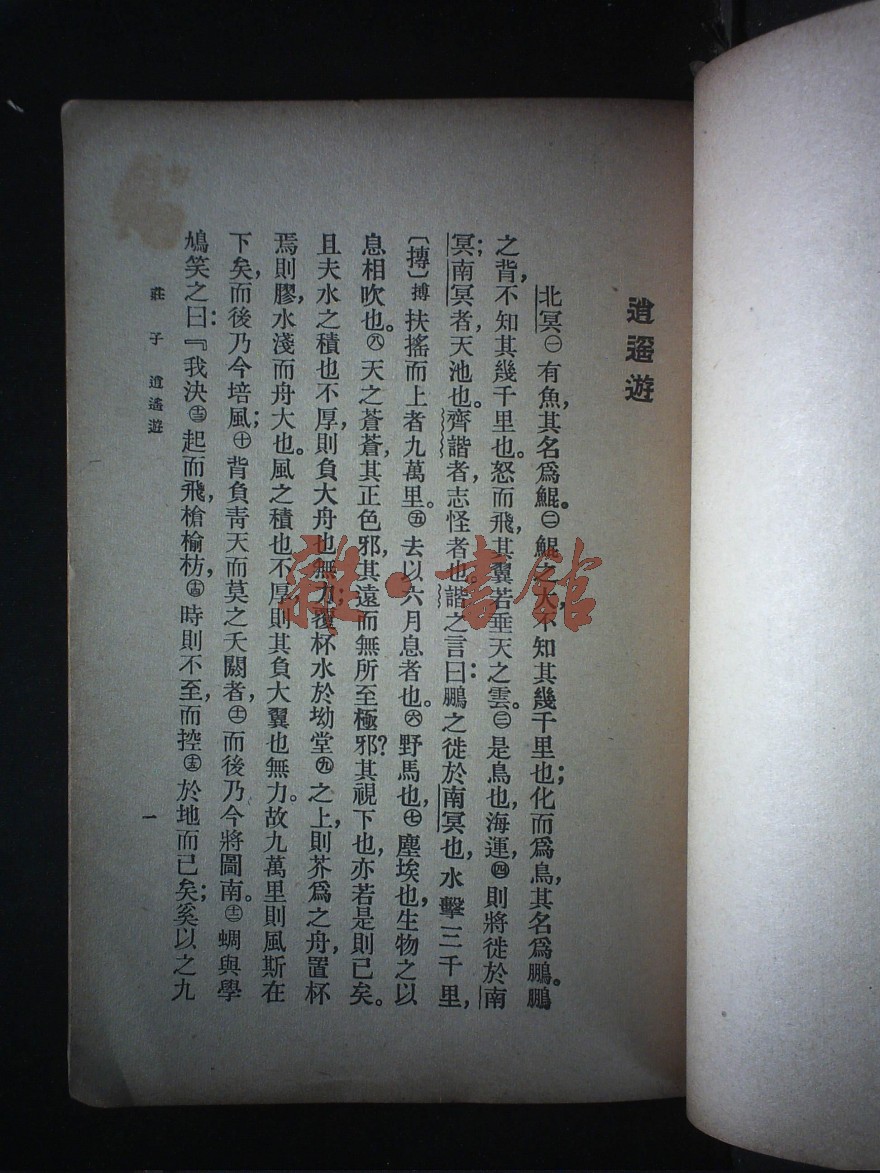 逍遙遊
北冥㊀有魚，其名爲鯤。㊁鯤之大，不知其幾千里也；化而爲鳥，其名爲鵬。鵬
之背，不知其幾千里也。怒而飛，其翼若垂天之雲。㊂是鳥也，海運，㊃則將徙於南
冥；南冥者，天池也。齊諧者，志怪者也。諧之言曰：鵬之徙於南冥也，水擊三千里，
〔摶〕搏扶搖而上者九萬里。㊄去以六月息者也。㊅野馬也，㊆塵埃也，生物之以
息相吹也。㊇天之蒼蒼，其正色邪，其遠而無所至極邪？其視下也，亦若是則已矣。
且夫水之積也不厚，則負大舟也無力；覆杯水於坳堂㊈之上，則芥爲之舟，置杯
焉則膠，水淺而舟大也。風之積也不厚，則其負大翼也無力。故九萬里則風斯在
下矣，而後乃今培風；㊉背負靑天而莫之夭閼者，㊉㊀而後乃今將圖南。㊉㊁蜩與學
鳩笑之曰：『我決㊉㊂起而飛，槍榆枋，㊉㊃時則不至，而控㊉㊄於地而已矣；奚以之九
莊子 逍遙遊
一
雜·書館